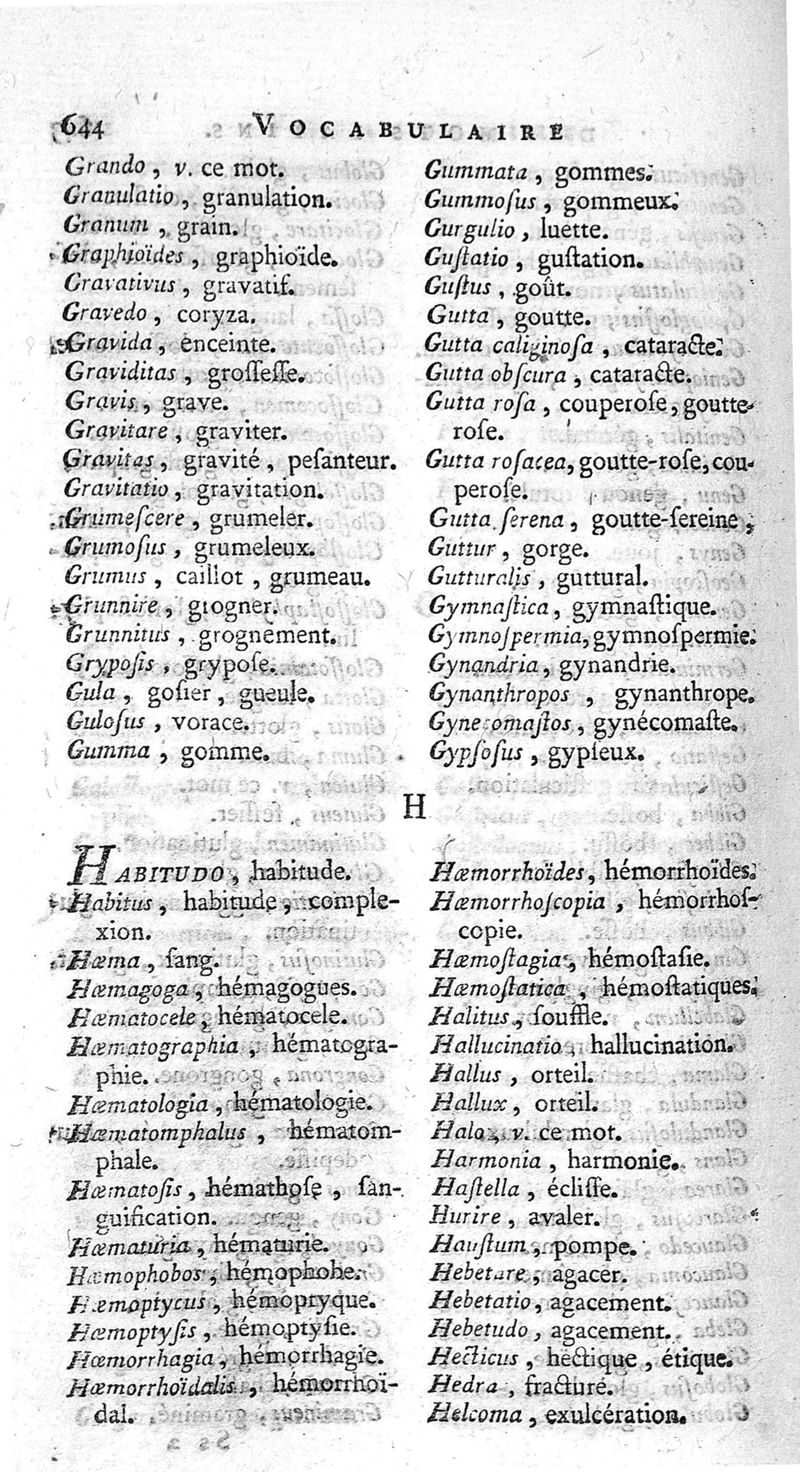 644 VOCABULAIRE
Grando, v. ce mot.
Granulatio, granulation.
Granum, grain.
Graphioïdes, graphioïde.
Gravativus, gravatif.
Gravedo, coryza.
Gravida, enceinte.
Graviditas, groſſeſſe.
Gravis, grave.
Gravitare, graviter.
Gravitas, gravité, peſanteur.
Gravitatio, gravitation.
Grumeſcere, grumeler.
Grumoſus, grumeleux.
Grumus, caillot, grumeau.
Grunnire, grogner.
Grunnitus, grognement.
Grypoſis, grypoſe.
Gula, goſier, gueule.
Guloſus, vorace.
Gumma, gomme.
Gummata, gommes.
Gummoſus, gommeux.
Gurgulio, luette.
Guſtatio, guſtation.
Guſtus, goût.
Gutta, goutte.
Gutta caliginoſa, cataracte.
Gutta obſcura, cataracte.
Gutta roſa, couperoſe, goutte-
roſe.
Gutta roſacea, goutte-roſe, cou-
peroſe.
Gutta ſerena, goutte-ſereine;
Guttur, gorge.
Gutturalis, guttural.
Gymnaſtica, gymnaſtique.
Gymnoſpermia, gymnoſpermie.
Gynandria, gynandrie.
Gynanthropos, gynanthrope.
Gynecomaſtos, gynécomaſte.
Gypſoſus, gypſeux.
H
HABITUDO, habitude.
Habitus, habitude, comple-
xion.
Hæma, ſang.
Hæmagoga, hémagogues.
Hæmatocele, hématocele.
Hæmatographia, hématogra-
phie.
Hæmatologia, hématologie.
Hæmatomphalus, hématom-
phale.
Hæmatoſis, hémathoſe, ſan-
guification.
Hæmaturia, hématurie.
Hæmophobos, hémophobe.
Hæmoptycus, hémoptyque.
Hæmoptyſis, hémoptyſie.
Hæmorrhagia, hémorrhagie.
Hæmorrhoïdalis, hémorrhoï-
dal.
Hæmorrhoïdes, hémorrhoïdes.
Hæmorrhoſcopia, hémorrhoſ-
copie.
Hæmoſtagia, hémoſtaſie.
Hæmoſtatica, hémoſtatiques.
Halitus, ſouffle.
Hallucinatio, hallucination.
Hallus, orteil.
Hallux, orteil.
Halo, v. ce mot.
Harmonia, harmonie.
Haſtella, écliſſe.
Hurire, avaler.
Hauſtum, pompe.
Hebetare, agacer.
Hebetatio, agacement.
Hebetudo, agacement.
Hecticus, hectique, étique.
Hedra, fracture.
Helcoma, exulcération.